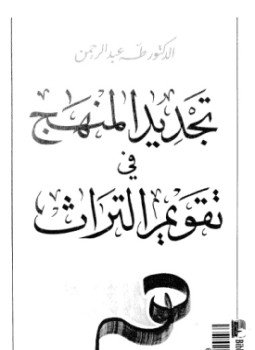 الدكتور طه عبد الرحمن
تجديد المنهج
في
تقويم التراث